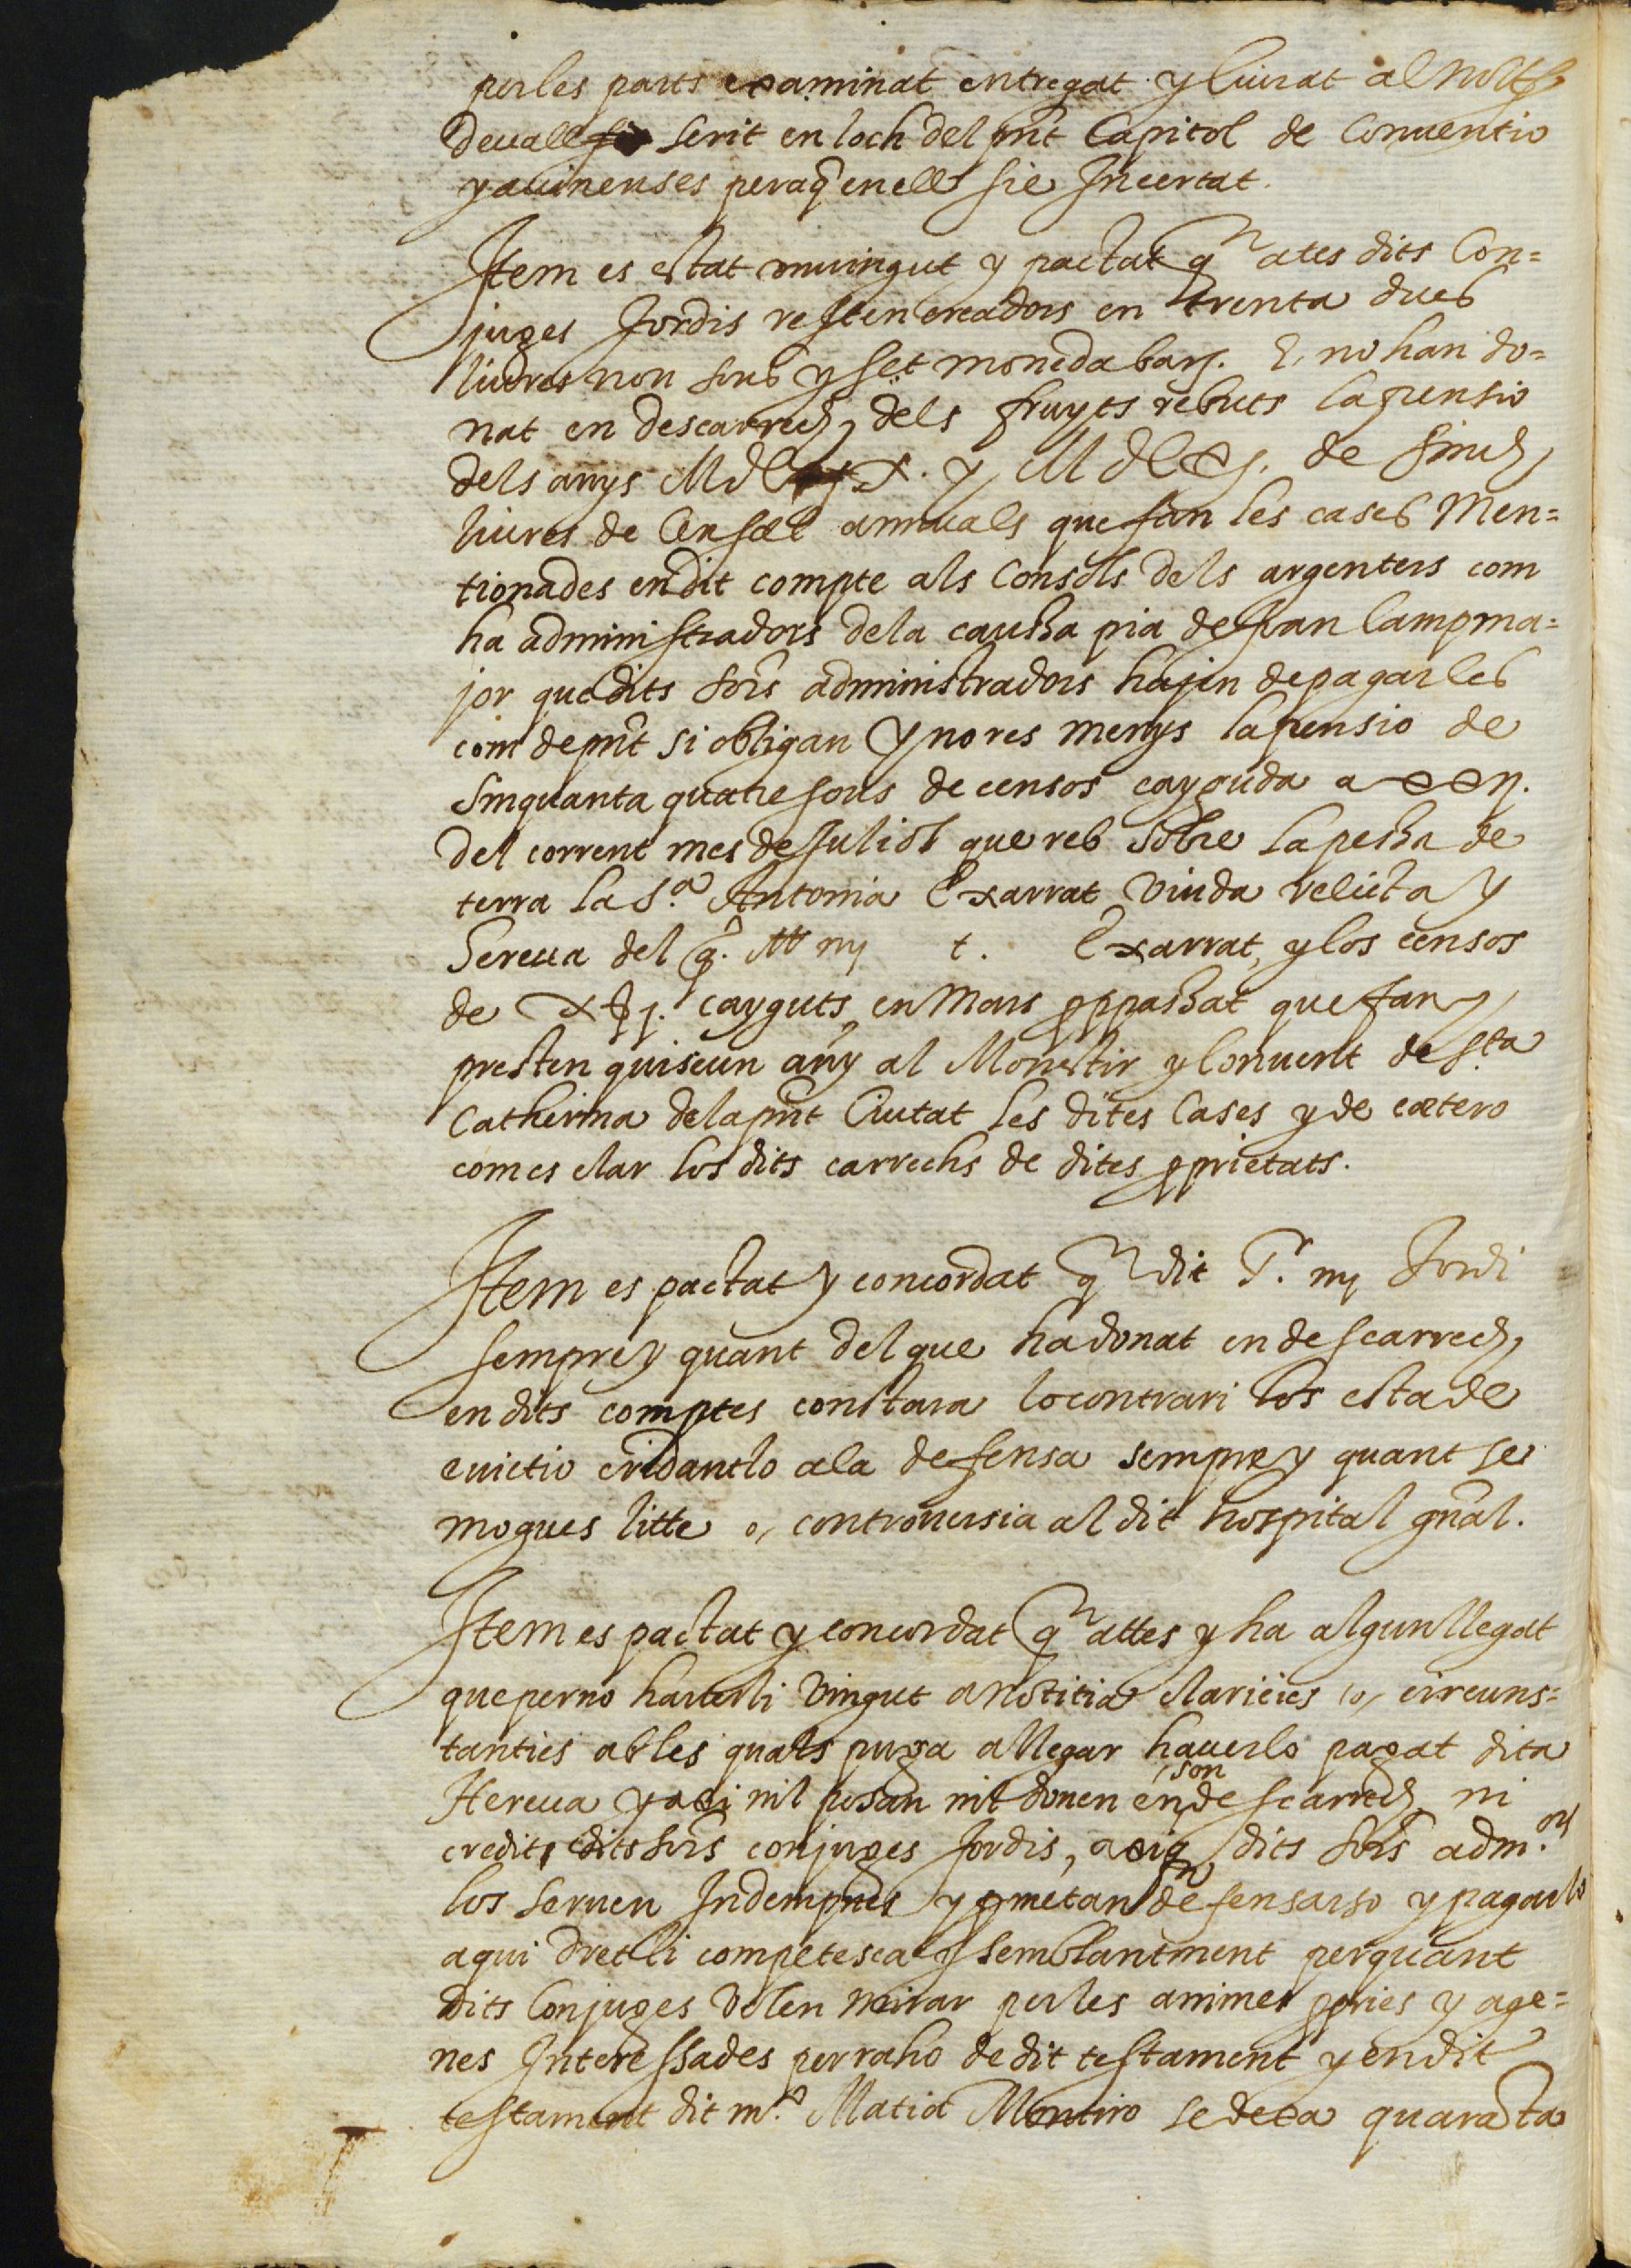 perles parts examinat entregat y lliurat al nott.
devall scrit en loch del pnt Capitol de Conventio
y avinenses peraq̃ enell sie Incertat.
Item es estat convingut y pactat q ates dits Con=
juges Jordis resten creadors en trenta dues
liures nou sous y set moneda barç. E, no han do=
nat en descarrech dels fruyts rebuts la pensio
dels anys de sinch
liures de Censal annuals que fan les cases Men=
tionades en dit compte als Consols dels argenters com
ha administradors dela causha pia de Joan Campma=
jor que dits sors administradors hajen de pagarles
com de pnt si obligan y no res menys la pensio de
sinquanta quatre sous de censos cayguda a xxvj.
del corrent mes de Juliol que reb sobre la pessa de
terra la S.ª Antonia Exarrat viuda relicta y
Hereva del q.º Mº Exarrat, y los censos
de cayguts en Mars pppassat que fan y
presten quiscun any al Monestir y Convent de Sta
Catherina dela pnt Ciutat les dites Cases y de cætero
com es clar los dits carrechs de dites pprietats.
Item es pactat y concordat q dit Jordi
sempre y quant del que ha donat en descarrech
en dits comptes constara lo contrari los estade
evictio cridantlo ala defensa sempre y quant se
mogues litte o, controversia al dit hospital gñal.
Item es pactat y concordat q attes y ha algun llegat
que per no haverli vingut a notitia claricies o, circuns=
tanties ables quals puga allegar haverlo pagat dita
Hereva y axi nil posan nil donen en son descarrech ni
credit, dits sors conjuges Jordis, axi q dits sors adm.ors
los serven Indempnes y pmetan defensarso y pagarlo
a qui dret li competesca y semblantment perquant
dits Conjuges volen mirar perles animes ppries y age=
nes Interessades per raho de dit testament y en dit
testament dit m.º Matia Montiro se dexa quaranta